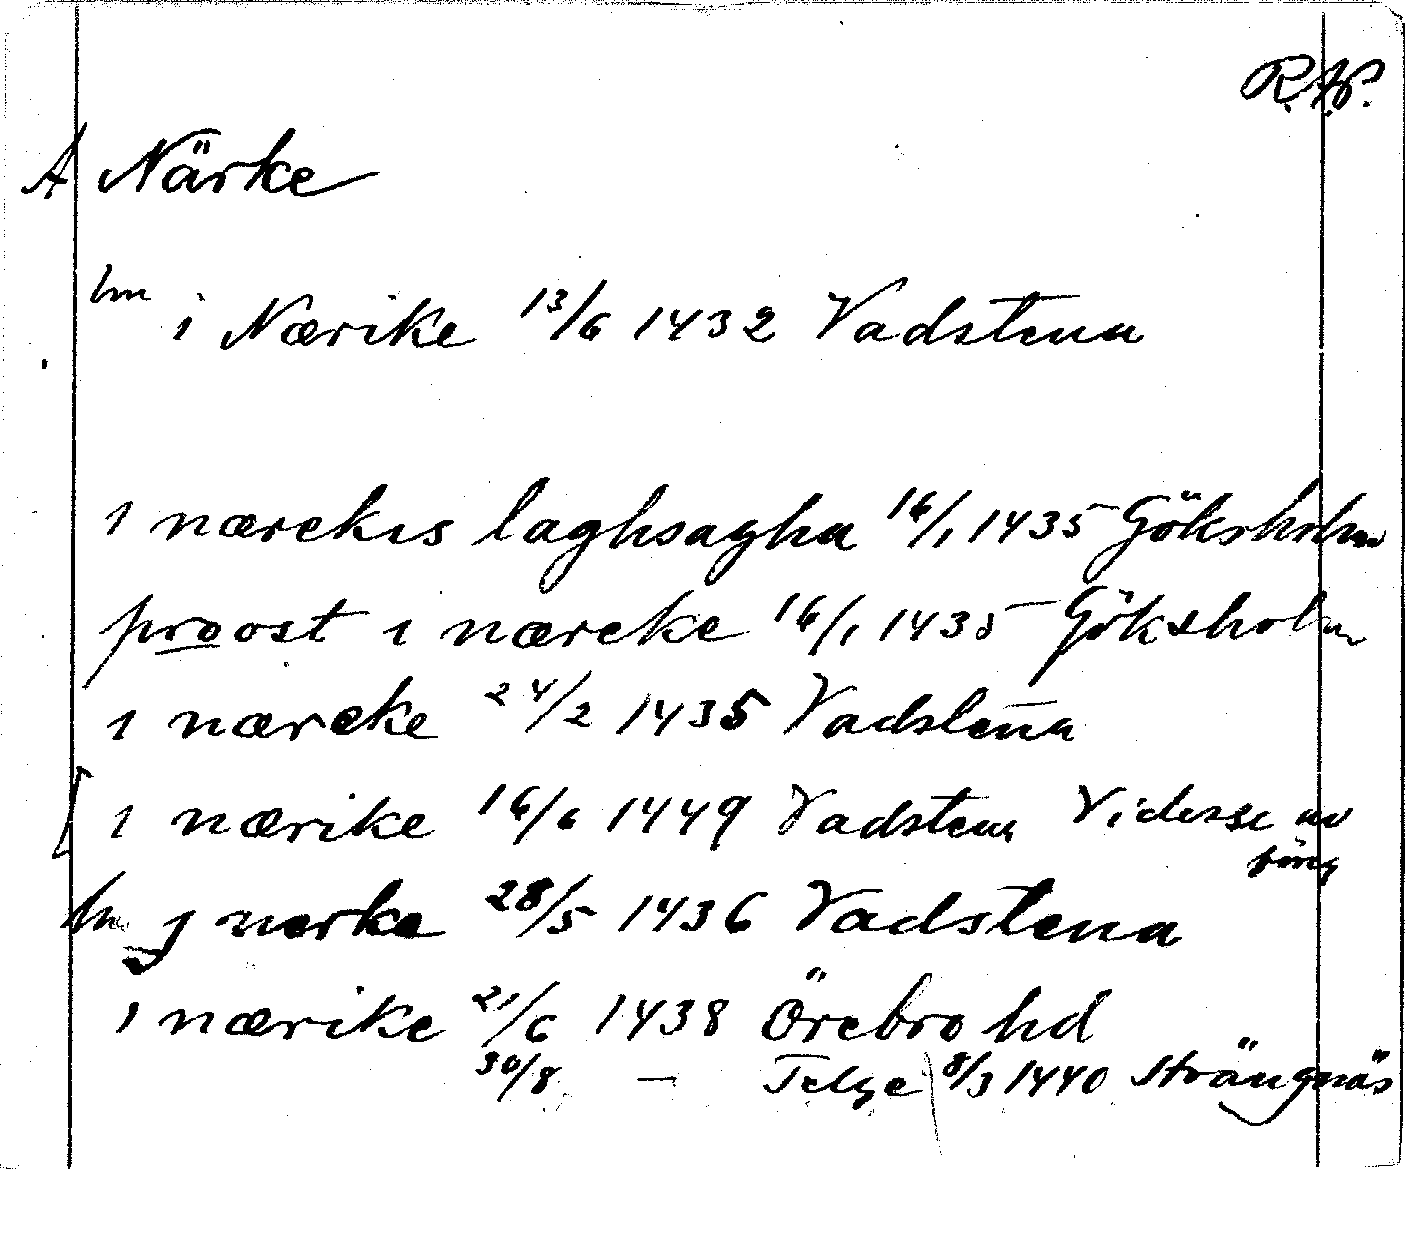 R.A.P.
A Närke
hm i Nærike 13/6 1432 Vadstena
i nærekis laghsagha 16/1 1435 Göksholm
proost i næreke 16/1 1435 Göksholm
i næreke 24/2 1435 Vadstena
[ i nærike 16/6 1449 Vadstena Vidisse av
hm j nerke 28/5 1436 Vadstena
i nærike 21/6 1438 Örebro hd
30/8 — Telge 8/3 1440 Strängnäs